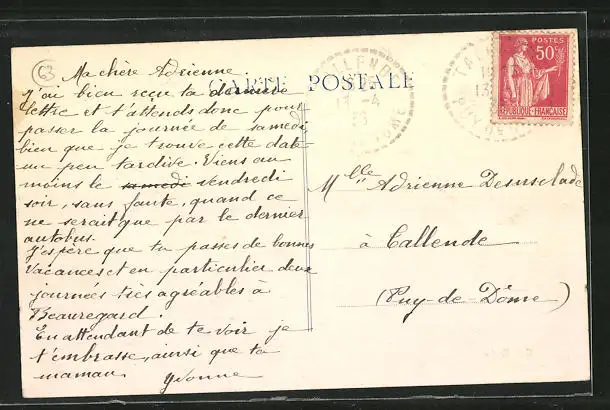 63
Ma chère Adrienne
CARTE POSTALE
J'ai bien reçu ta dernière
lettre et t'attends donc pour
passer la journée de samedi
bien que je trouve cette date
un peu tardive. Viens au
moins le samedi vendredi
soir, sans faute, quand ce
ne serait que par le dernier
autobus.
J'espère que tu passes de bonnes
vacances et en particulier deux
journées très agréables à
Beauregard.
En attendant de te voir je
t'embrasse, ainsi que ta
maman.
Yvonne
POSTES
50c
REPUBLIQUE-FRANÇAISE
13-4
Mlle Adrienne
à Tallende
(Puy-de-Dôme)